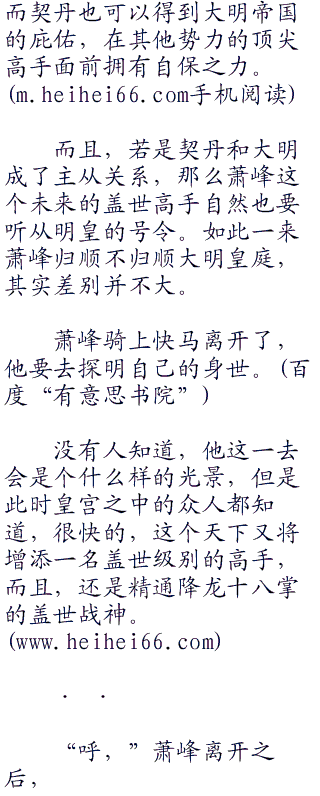 而契丹也可以得到大明帝国
的庇佑，在其他势力的顶尖
高手面前拥有自保之力。
(m.heihei66.com手机阅读)
而且，若是契丹和大明
成了主从关系，那么萧峰这
个未来的盖世高手自然也要
听从明皇的号令。如此一来
萧峰归顺不归顺大明皇庭，
其实差别并不大。
萧峰骑上快马离开了，
他要去探明自己的身世。(百
度“有意思书院”)
没有人知道，他这一去
会是个什么样的光景，但是
此时皇宫之中的众人都知
道，很快的，这个天下又将
增添一名盖世级别的高手，
而且，还是精通降龙十八掌
的盖世战神。
(www.heihei66.com)
．．
“呼，”萧峰离开之
后，